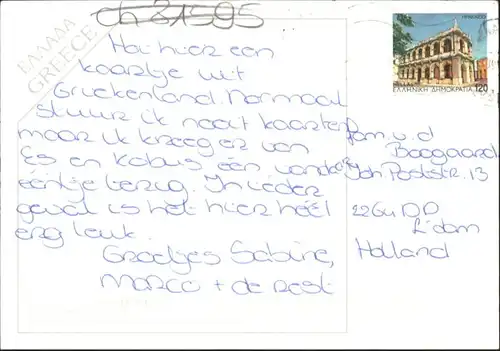 ch 31595
ΕΛΛΑΔΑ
GREECE
Hoi hier een
kaartje uit
Griekenland. Normaal
stuur ik nooit kaarten
maar ik kreeg er van
Es en Kobus één vandaar
ééntje terug. In ieder
geval is het hier héél
erg leuk.
Groetjes Sabine,
Marco + de rest
ΕΛΛΗΝΙΚΗ ΔΗΜΟΚΡΑΤΙΑ 120
Fam. v.d
Boogaard
Joh Poststr. 13
DD
R'dam
Holland